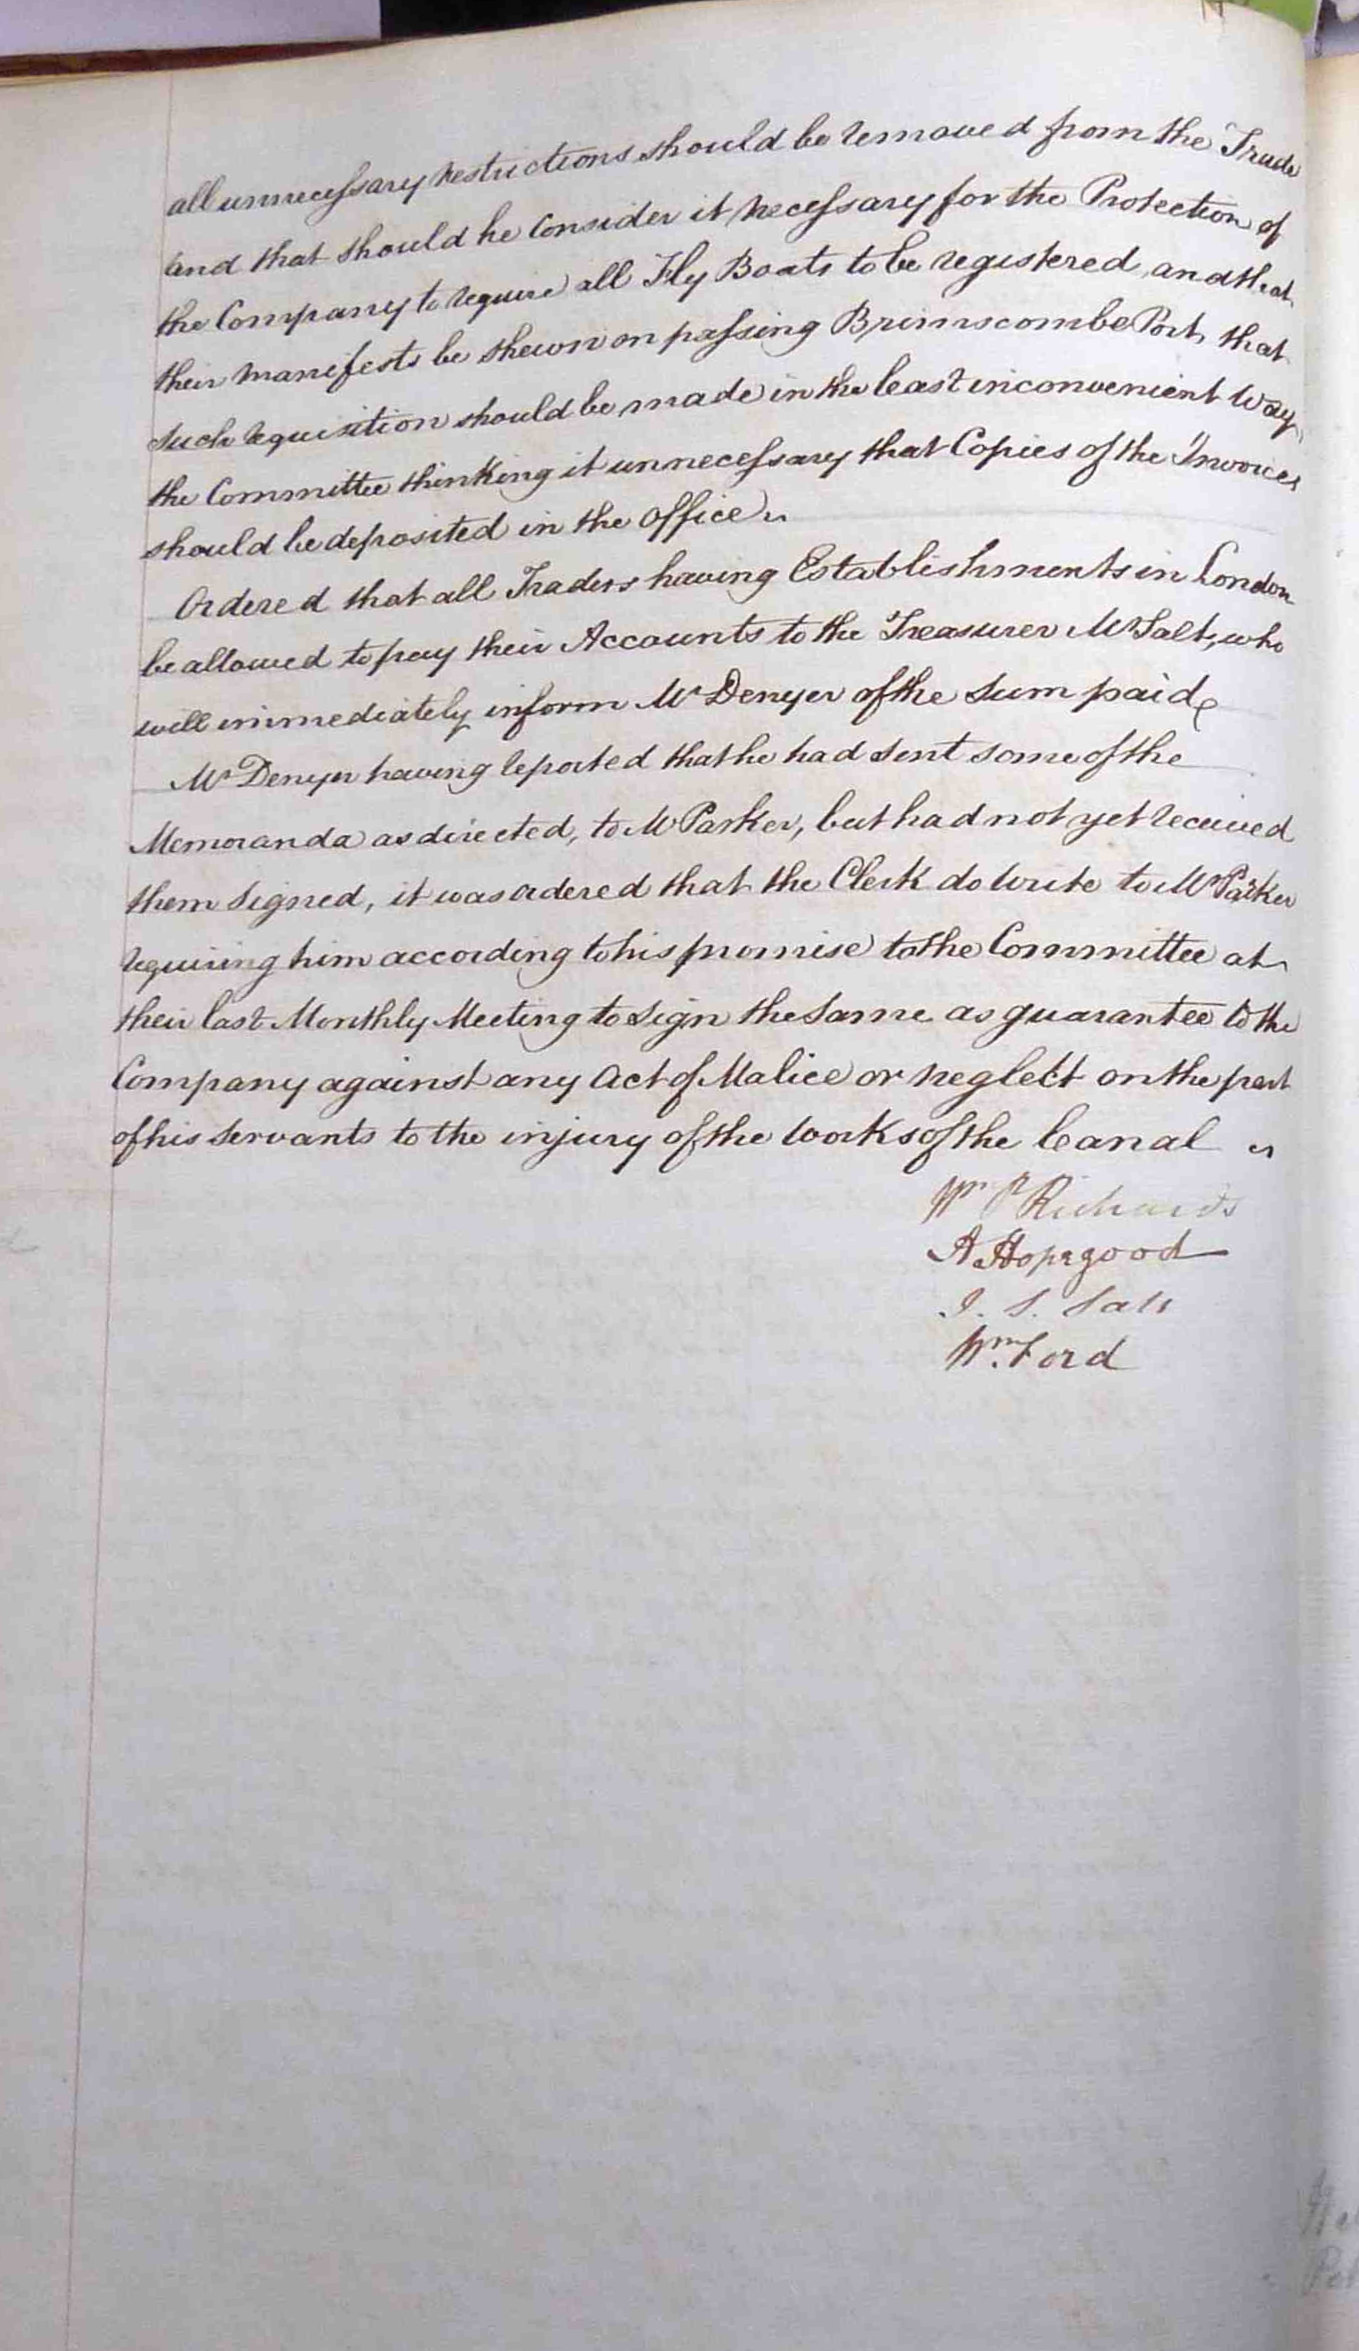 all unnecessary restrictions should be removed from the Trade
and that should he Consider it necessary for the Protection of
the Company to require all Fly Boats to be registered, and that
their manifests be shewn on passing Brimscombe Port, that
such requisition should be made in the least inconvenient Way,
the Committee thinking it unnecessary that Copies of the Invoices
should be deposited in the office
Ordered that all Traders having Establishments in London
be allowed to pay their Accounts to the Treasurer Mr Salt, who
will immediately inform Mr Denyer of the Sum paid
Mr Denyer having reported that he had sent some of the
Memoranda as directed, to Mr Parker, but had not yet received
them signed, it was ordered that the Clerk do write to Mr Parker
requiring him according to his promise to the Committee at
their last Monthly Meeting to sign the same as guarantee to the
Company against any Act of Malice or neglect on the part
of his Servants to the injury of the works of the Canal
Wm P Richards
A Hopegood
J. S. Salt
Wm. Ford